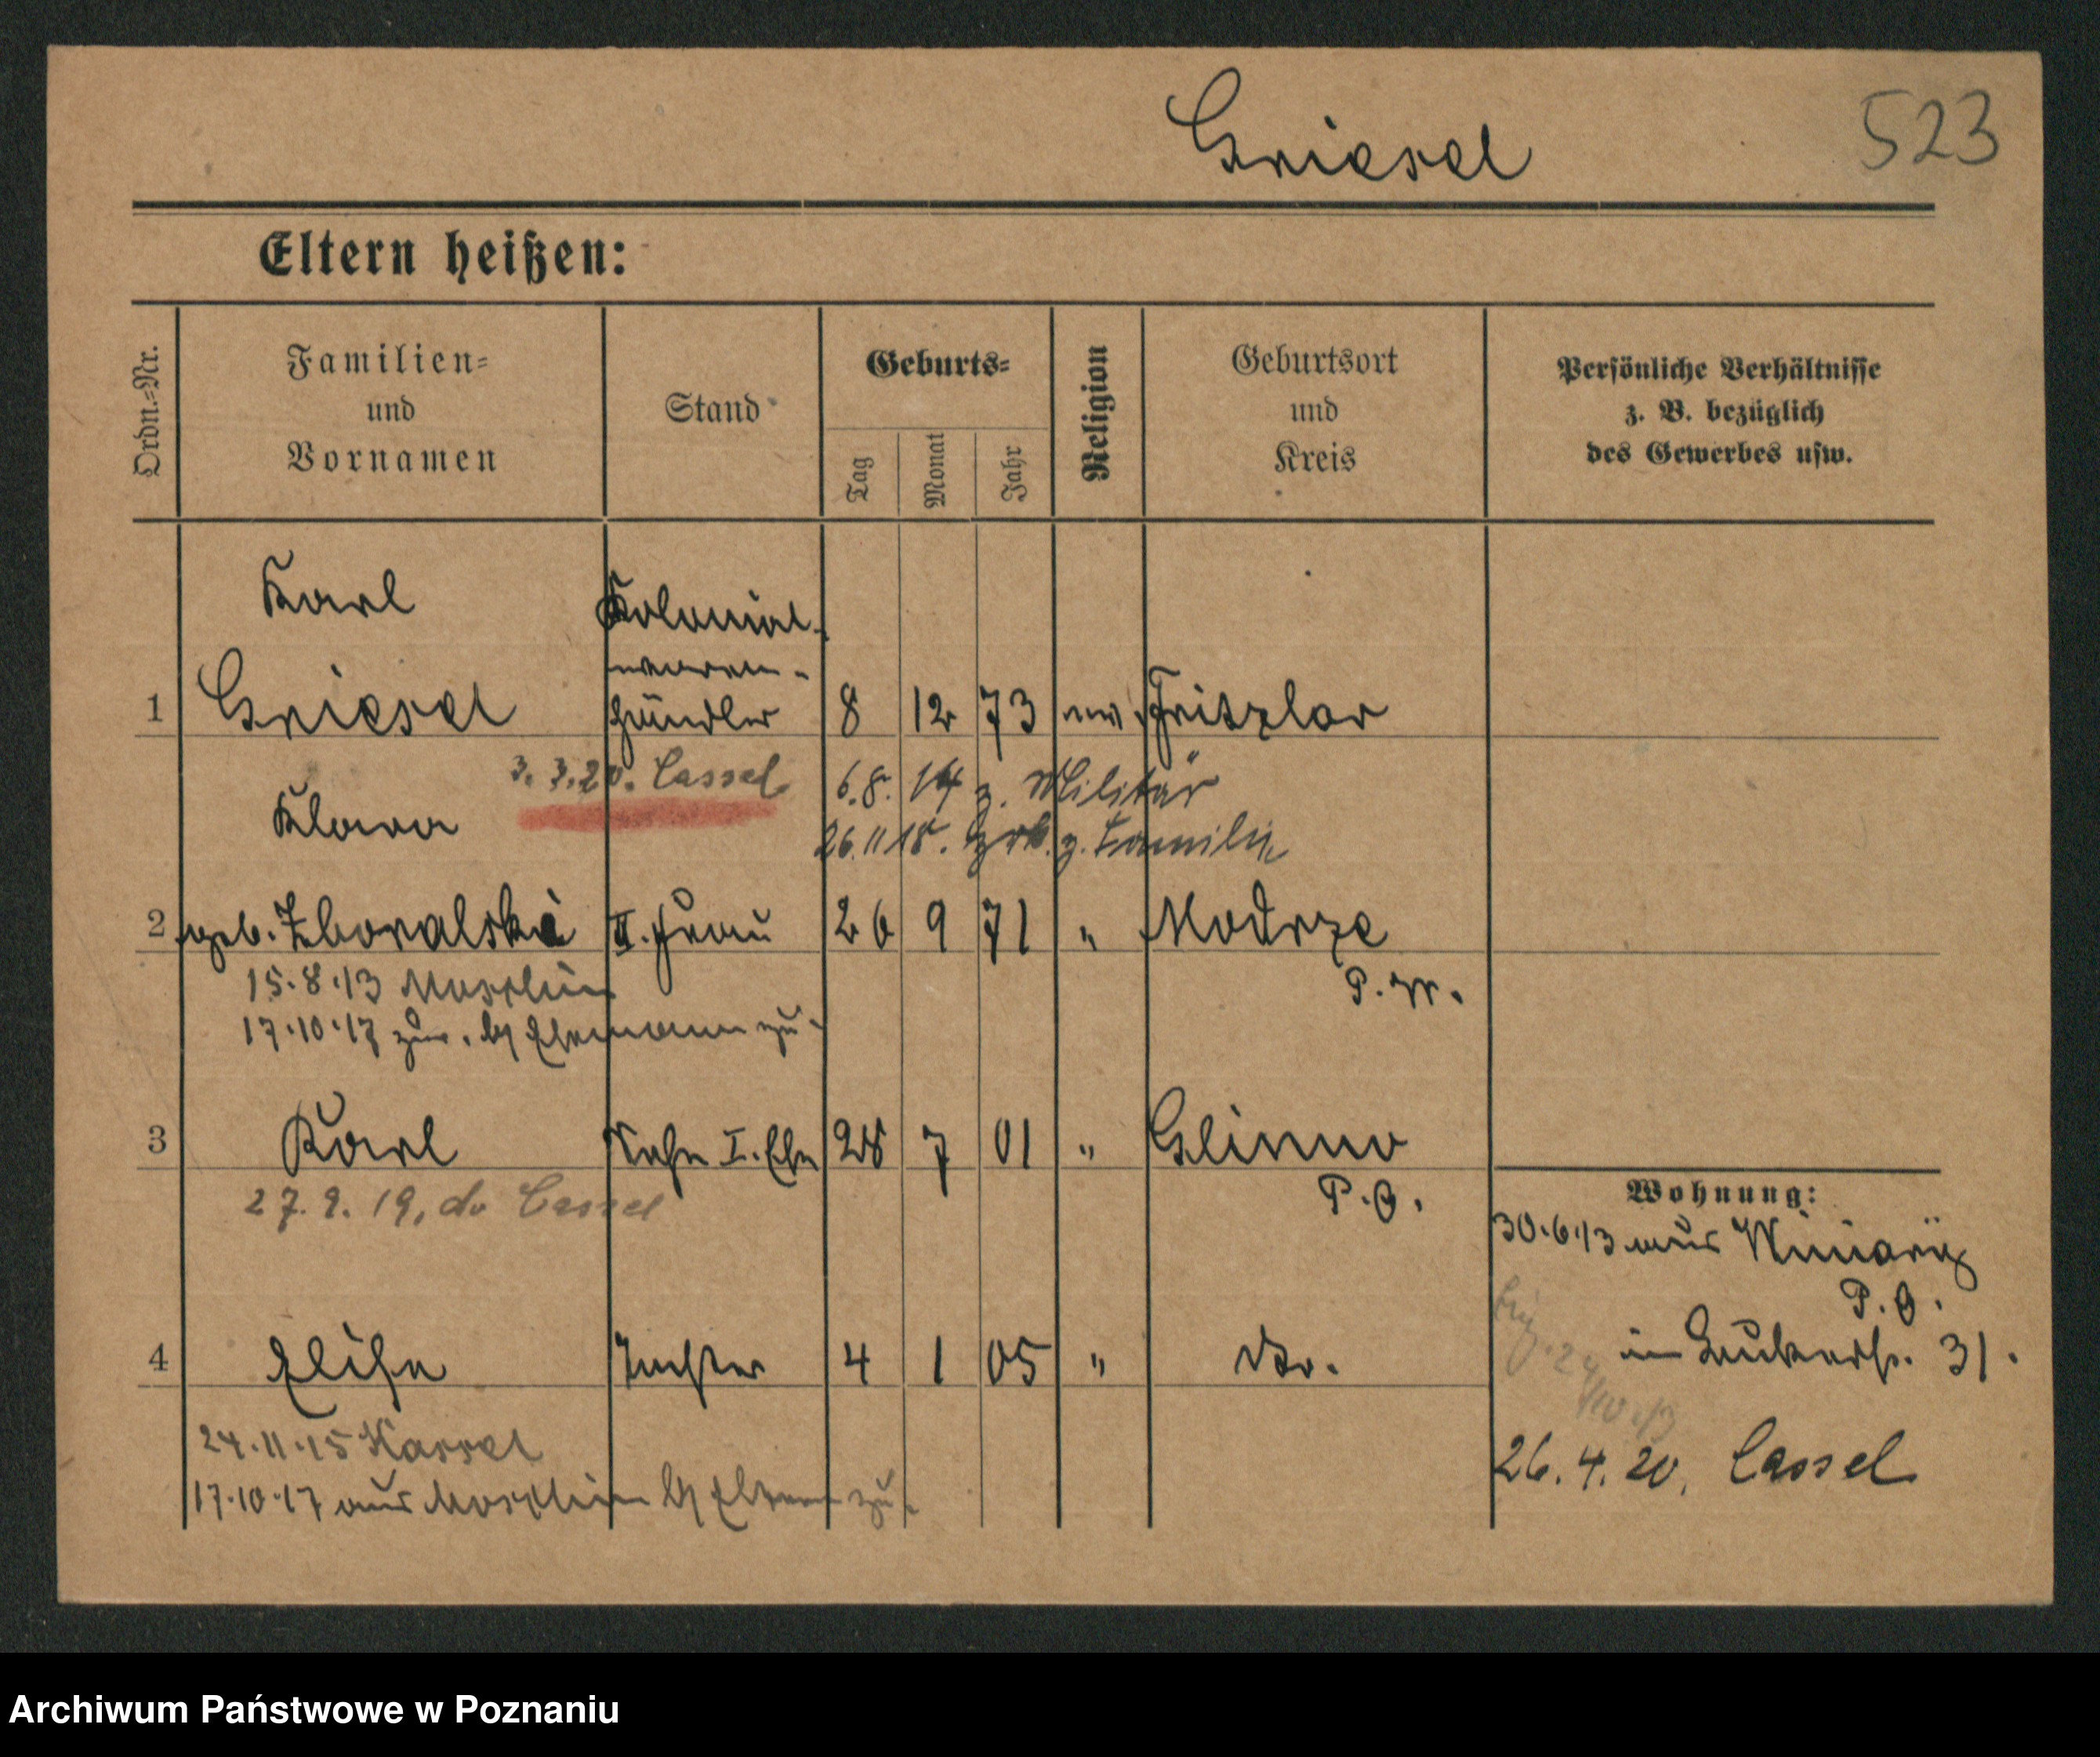 Griesel 523
Eltern heißen:
Ordn.-Nr.
Familien-
und
Vornamen
Stand
Geburts-
Tag
Monat
Jahr
Religion
Geburtsort
und
Kreis
Persönliche Verhältnisse
z. B. bezüglich
des Gewerbes usw.
Karl Kolonial-
waren-
1 Griesel händler 8 12 73 ev Fritzlar
3.3.20. Cassel 6.8.14 z. Militär
Klara 26.11 18. z. Familie
2 geb. Zboralski II. Frau 26 9 71 " Modrze
15.8.13 Moschin P. W.
17.10.17 zur. b/ Ehemann zu-
3 Karl Sohn I. Ehe 28 7 01 " Glinno
27.9.19, do Cassel P. O.
Wohnung:
30.6.13 aus Winiary
P. O.
4 Elise Tochter 4 1 05 " do. in 31.
24.11.15 Kassel
26.4.20, Cassel
17.10.17 aus Moschin b/ Eltern zu.
Archiwum Państwowe w Poznaniu